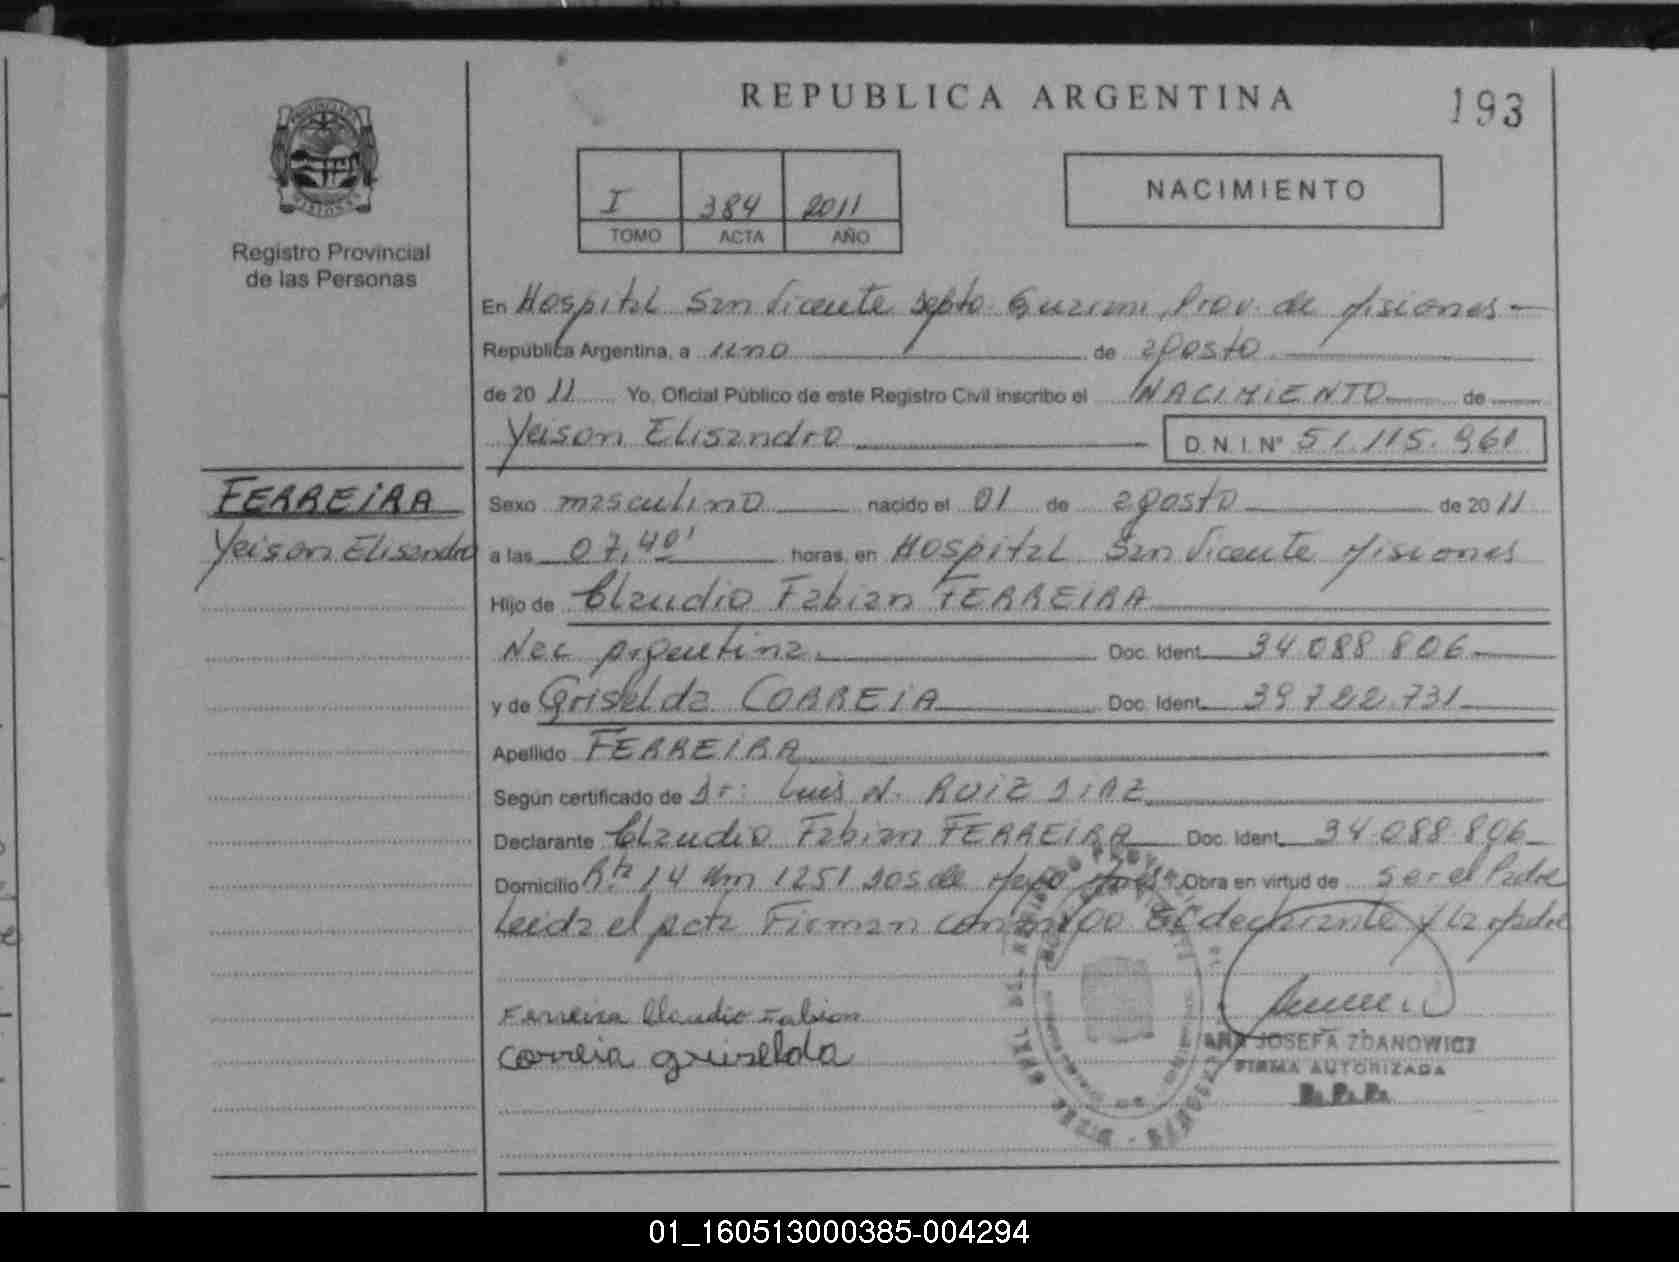 REPUBLICA ARGENTINA
193
I 384 2011
TOMO ACTA AÑO
NACIMIENTO
Registro Provincial
de las Personas
En Hospital San Vicente Depto Guarani, Prov. de Misiones
Republica Argentina, a uno de agosto
de 20 11 Yo, Oficial Público de este Registro Civil inscribo el NACIMIENTO de
Yeison Elisandro D.N.I. Nº 51.115.961
FERREIRA
Yeison Elisandro
Sexo masculino nacido el 01 de agosto de 20 11
a las 07,40' horas, en Hospital San Vicente Misiones
Hijo de Claudio Fabian FERREIRA
Nac Argentina. Doc. Ident. 34.088.806
y de Griselda CORREIA Doc. Ident. 39.722.731
Apellido FERREIRA
Según certificado de Dr: Luis N. RUIZ DIAZ
Declarante Claudio Fabian FERREIRA Doc. Ident. 34.088.806
Domicilio Rta 14 Km 1251 Dos de Mayo Obra en virtud de ser el Padre
Leida el Acta Firman conmigo El declarante y la Madre
Ferreira Claudio Fabian
Correia griselda
ANA JOSEFA ZDANOWICZ
FIRMA AUTORIZADA
R. P. P.
01_160513000385-004294